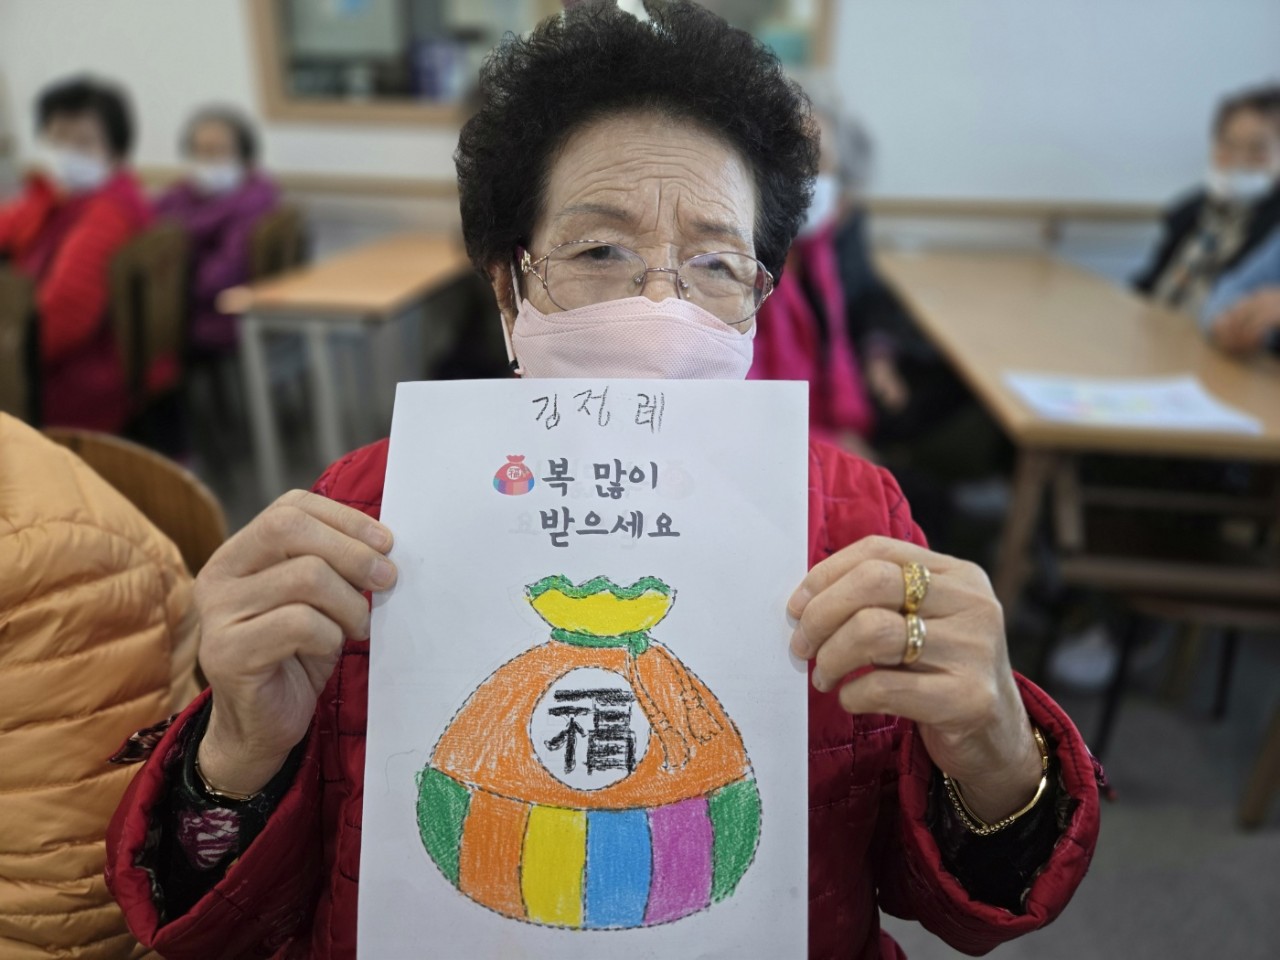 김정례
福 복 많이
받으세요
福